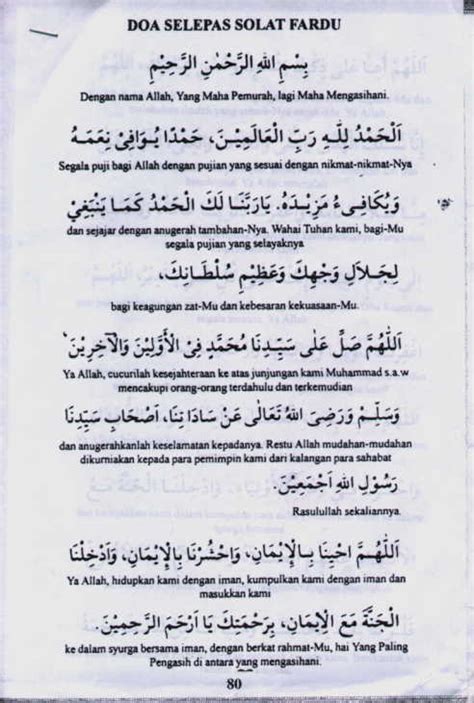 DOA SELEPAS SOLAT FARDU
بِسْمِ اللهِ الرَّحْمٰنِ الرَّحِيْمِ
Dengan nama Allah, Yang Maha Pemurah, lagi Maha Mengasihani.
اَلْحَمْدُ لِلّٰهِ رَبِّ الْعَالَمِيْنَ، حَمْدًا يُوَافِيْ نِعَمَهُ
Segala puji bagi Allah dengan pujian yang sesuai dengan nikmat-nikmat-Nya
وَيُكَافِىءُ مَزِيْدَهُ. يَارَبَّنَا لَكَ الْحَمْدُ كَمَا يَنْبَغِيْ
dan sejajar dengan anugerah tambahan-Nya. Wahai Tuhan kami, bagi-Mu
segala pujian yang selayaknya
لِجَلَالِ وَجْهِكَ وَعَظِيْمِ سُلْطَانِكَ،
bagi keagungan zat-Mu dan kebesaran kekuasaan-Mu.
اَللّٰهُمَّ صَلِّ عَلٰى سَيِّدِنَا مُحَمَّدٍ فِى الْأَوَّلِيْنَ وَالْآخِرِيْنَ
Ya Allah, cucurilah kesejahteraan ke atas junjungan kami Muhammad s.a.w
mencakupi orang-orang terdahulu dan terkemudian
وَسَلِّمْ وَرَضِيَ اللهُ تَعَالٰى عَنْ سَادَاتِنَا، اَصْحَابِ سَيِّدِنَا
dan anugerahkanlah keselamatan kepadanya. Restu Allah mudahan-mudahan
dikurniakan kepada para pemimpin kami dari kalangan para sahabat
رَسُوْلِ اللهِ اَجْمَعِيْنَ.
Rasulullah sekaliannya.
اَللّٰهُمَّ احْيِنَا بِالْإِيْمَانِ، وَاحْشُرْنَا بِالْإِيْمَانِ، وَاَدْخِلْنَا
Ya Allah, hidupkan kami dengan iman, kumpulkan kami dengan iman dan
masukkan kami
الْجَنَّةَ مَعَ الْإِيْمَانِ، بِرَحْمَتِكَ يَا اَرْحَمَ الرَّحِمِيْنَ
ke dalam syurga bersama iman, dengan berkat rahmat-Mu, hai Yang Paling
Pengasih di antara yang mengasihani.
80